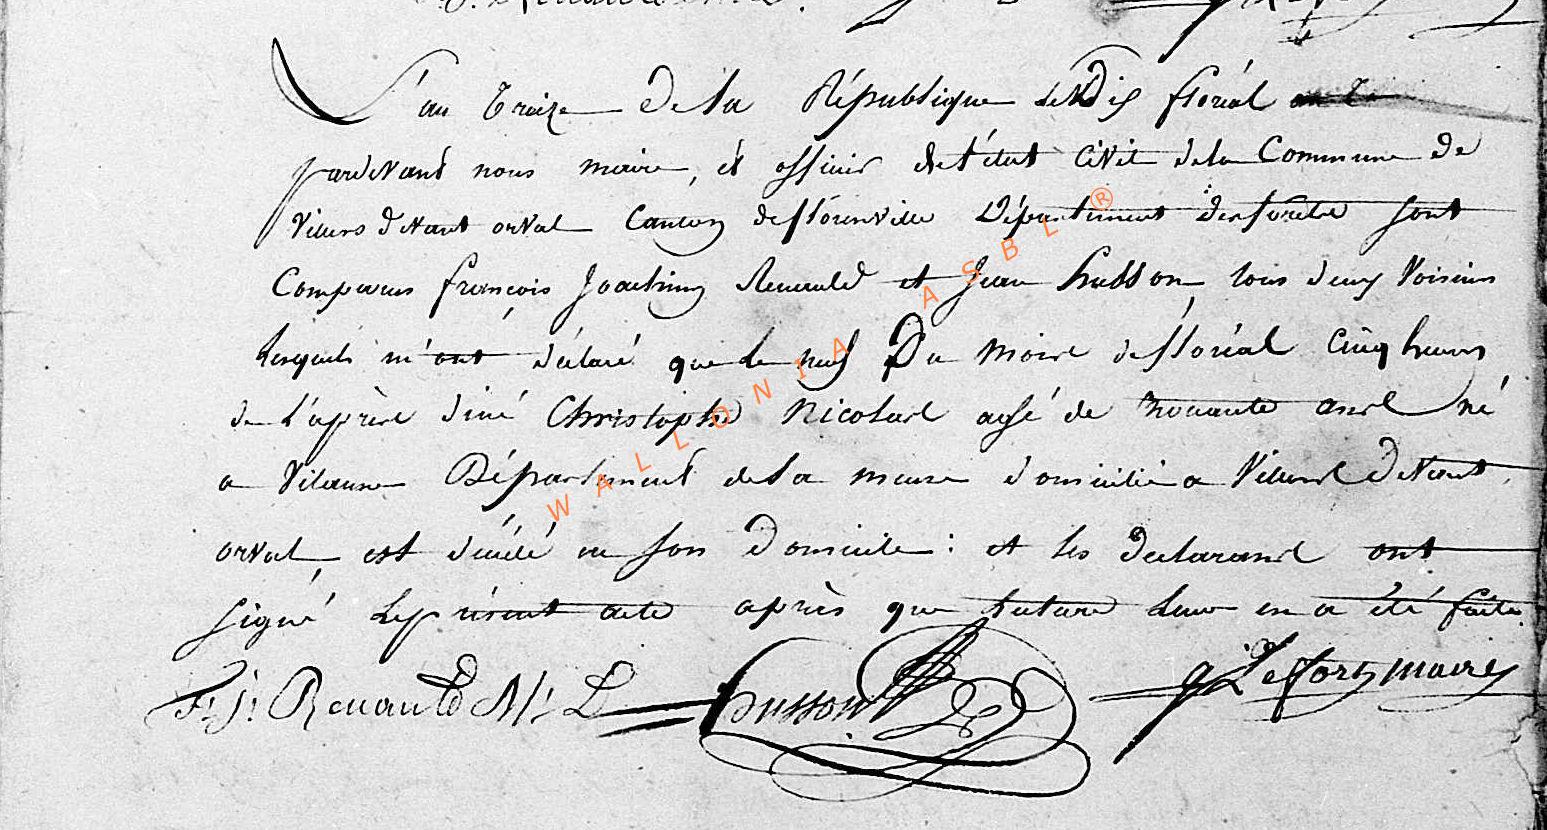 L'an treize de la République le dix floréal
pardevant nous maire, et officier de l'état civil de la Commune de
Villers devant orval Canton de florenville Département des forêts sont
Comparus françois Joachim Renauld et Jean husson tous deux Voisins
lesquels m'ont déclaré que le neuf Du mois de floréal Cinq heures
de l'après diné Christophe Nicolas agé de nonante ans né
a Département de la meuse domicilié a Villers devant
orval, est décédé en son domicile : et les declarans ont
signé le présent acte après que lecture leur en a été faite.
F. J. Renauld husson Lefort maire
WALLONIA ASBL ®